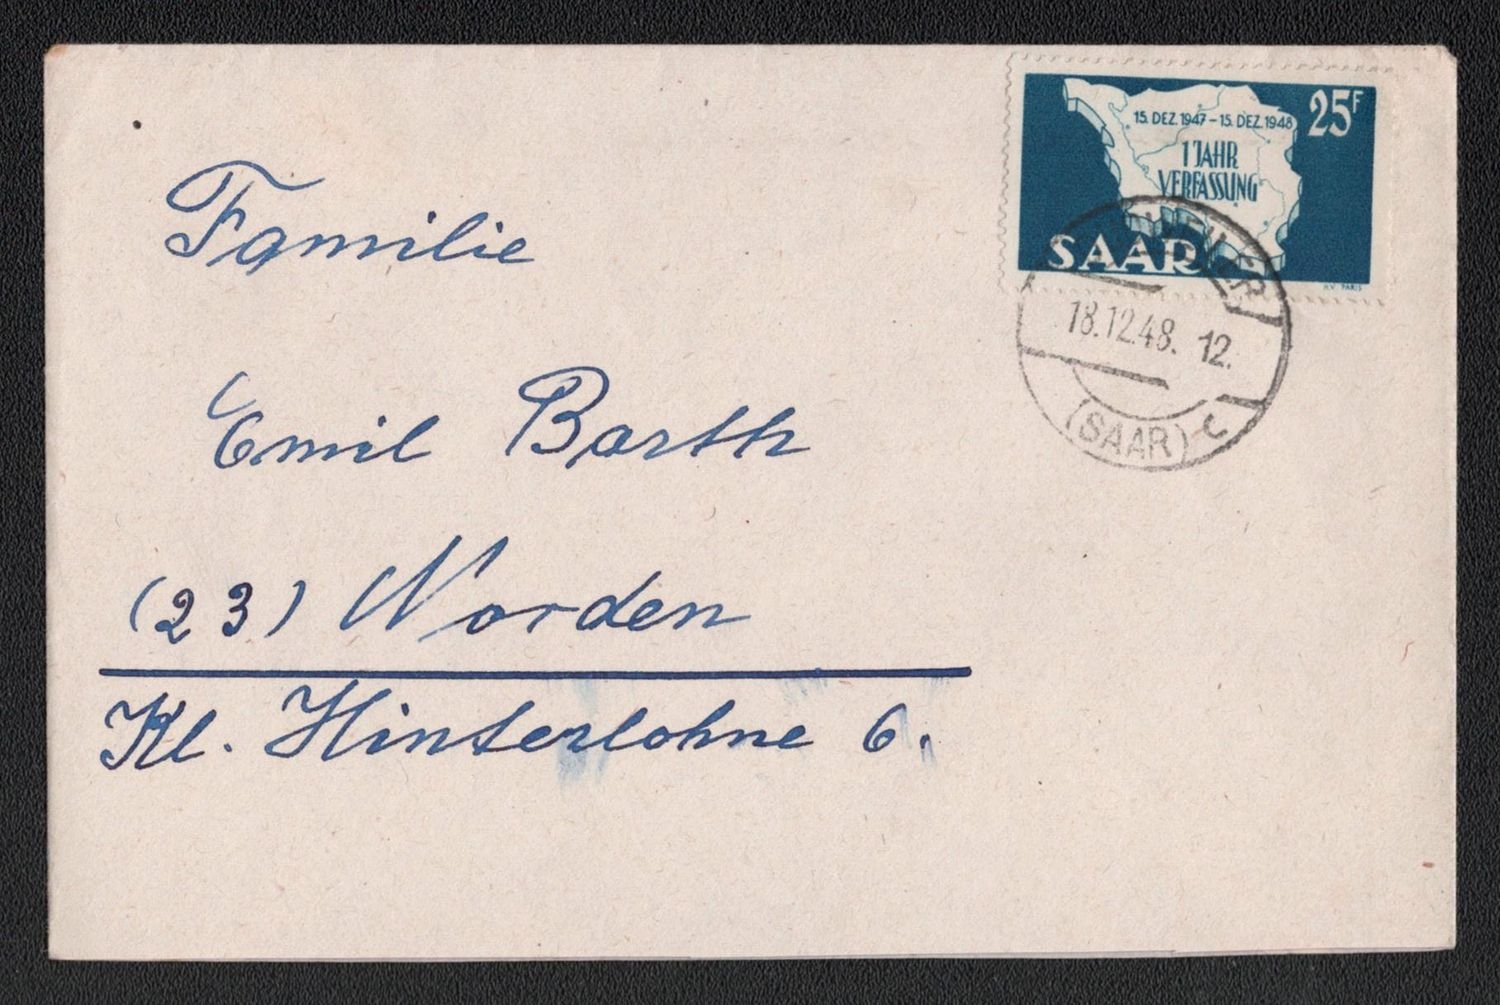 15. DEZ. 1947 – 15. DEZ. 1948
25F
1 JAHR
VERFASSUNG
SAAR
H.V. PARIS
18.12.48. 12.
(SAAR) c
Familie
Emil Barth
(23) Norden
Kl. Hinterlohne 6.